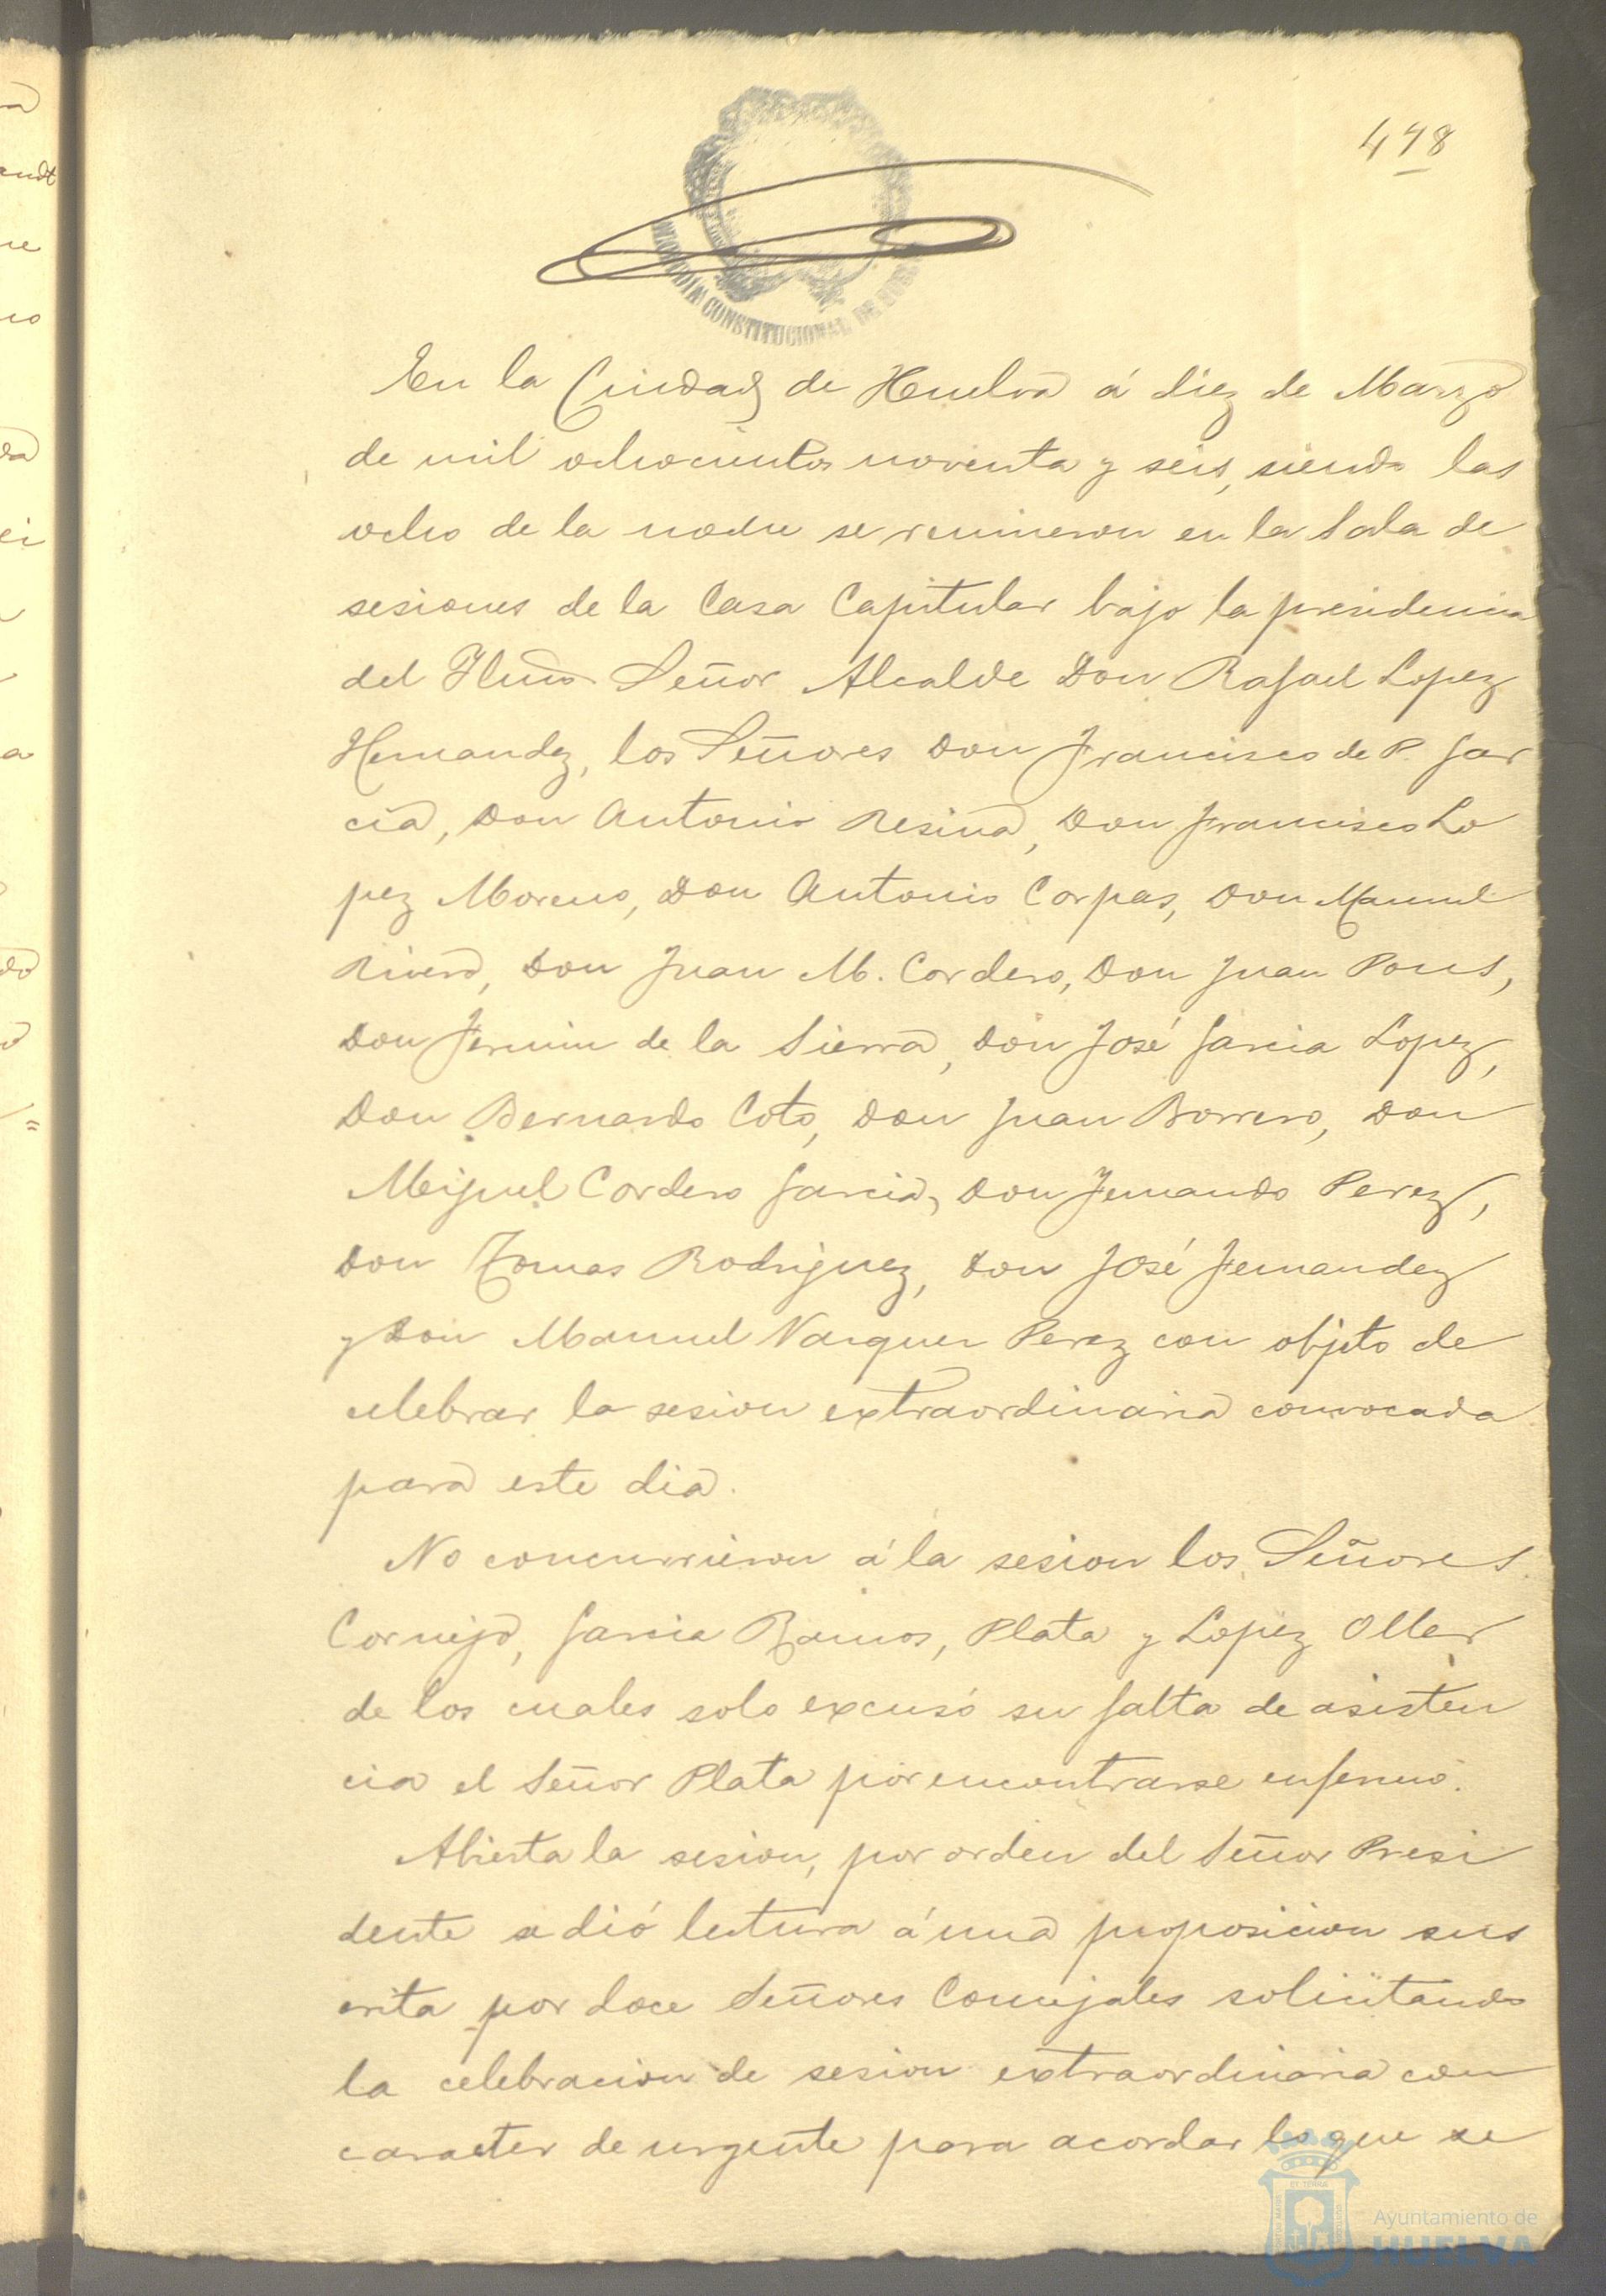 498
ALCALDIA CONSTITUCIONAL DE HUELVA
En la Ciudad de Huelva á diez de Marzo
de mil ochocientos noventa y seis, siendo las
ocho de la noche se reunieron en la Sala de
sesiones de la Casa Capitular bajo la presidencia
del Iltmo Señor Alcalde Don Rafael Lopez
Hernandez, los Señores Don Francisco de P. Gar
cia, Don Antonio Resina, Don Francisco Lo
pez Moreno, Don Antonio Corpas, Don Manuel
Rivero, Don Juan M. Cordero, Don Juan Pons,
Don Fermin de la Sierra, Don José Garcia Lopez,
Don Bernardo Coto, Don Juan Borrero, Don
Miguel Cordero Garcia, Don Fernando Perez,
Don Tomas Rodriguez, Don José Fernandez
y Don Manuel Vazquez Perez con objeto de
celebrar la sesion extraordinaria convocada
para este dia.
No concurrieron á la sesion los Señores
Cornejo, Garcia Ramos, Plata y Lopez Oller
de los cuales solo excusó su falta de asisten
cia el Señor Plata por encontrarse enfermo.
Abierta la sesion, por orden del Señor Presi
dente se dió lectura á una proposicion sus
crita por doce Señores Concejales solicitando
la celebracion de sesion extraordinaria con
caracter de urgente para acordar lo que se
Ayuntamiento de
HUELVA